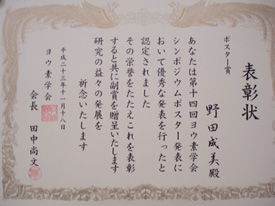 ポスター賞
表彰状
野田成美殿
あなたは第十四回ヨウ素学会
シンポジウムポスター発表に
おいて優秀な発表を行ったと
認定されました
その栄誉をたたえこれを表彰
すると共に副賞を贈呈いたします
研究の益々の発展を
祈念いたします
平成二十三年十一月十八日
ヨウ素学会
会長 田中尚文